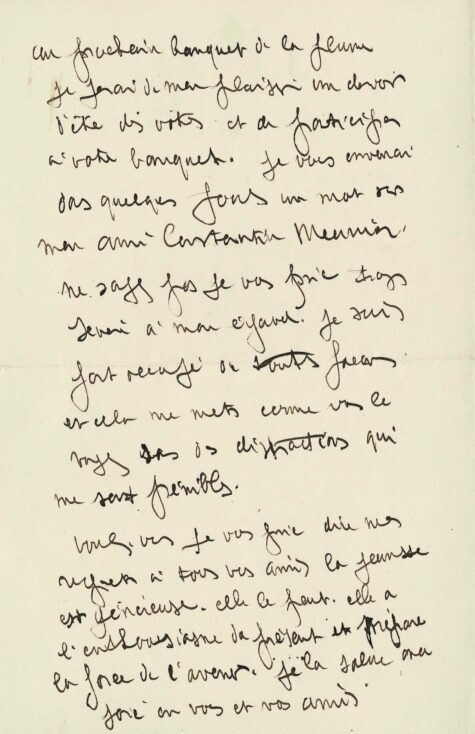 au prochain banquet de la plume
je ferai de mon plaisir un devoir
d'être des vôtres et de participer
à votre banquet. je vous enverrai
dans quelques jours un mot sur
mon ami Constantin Meunier.
ne soyez pas je vous prie trop
sévère à mon égard. je suis
fort occupé de toutes façons
et cela me mets comme vous le
voyez dans des distractions qui
me sont pénibles.
voulez vous je vous prie dire mes
regrets à tous vos amis la jeunesse
est généreuse. elle le peut. elle a
l'enthousiasme du présent et prépare
la force de l'avenir. je la salue avec
joie en vous et vos amis